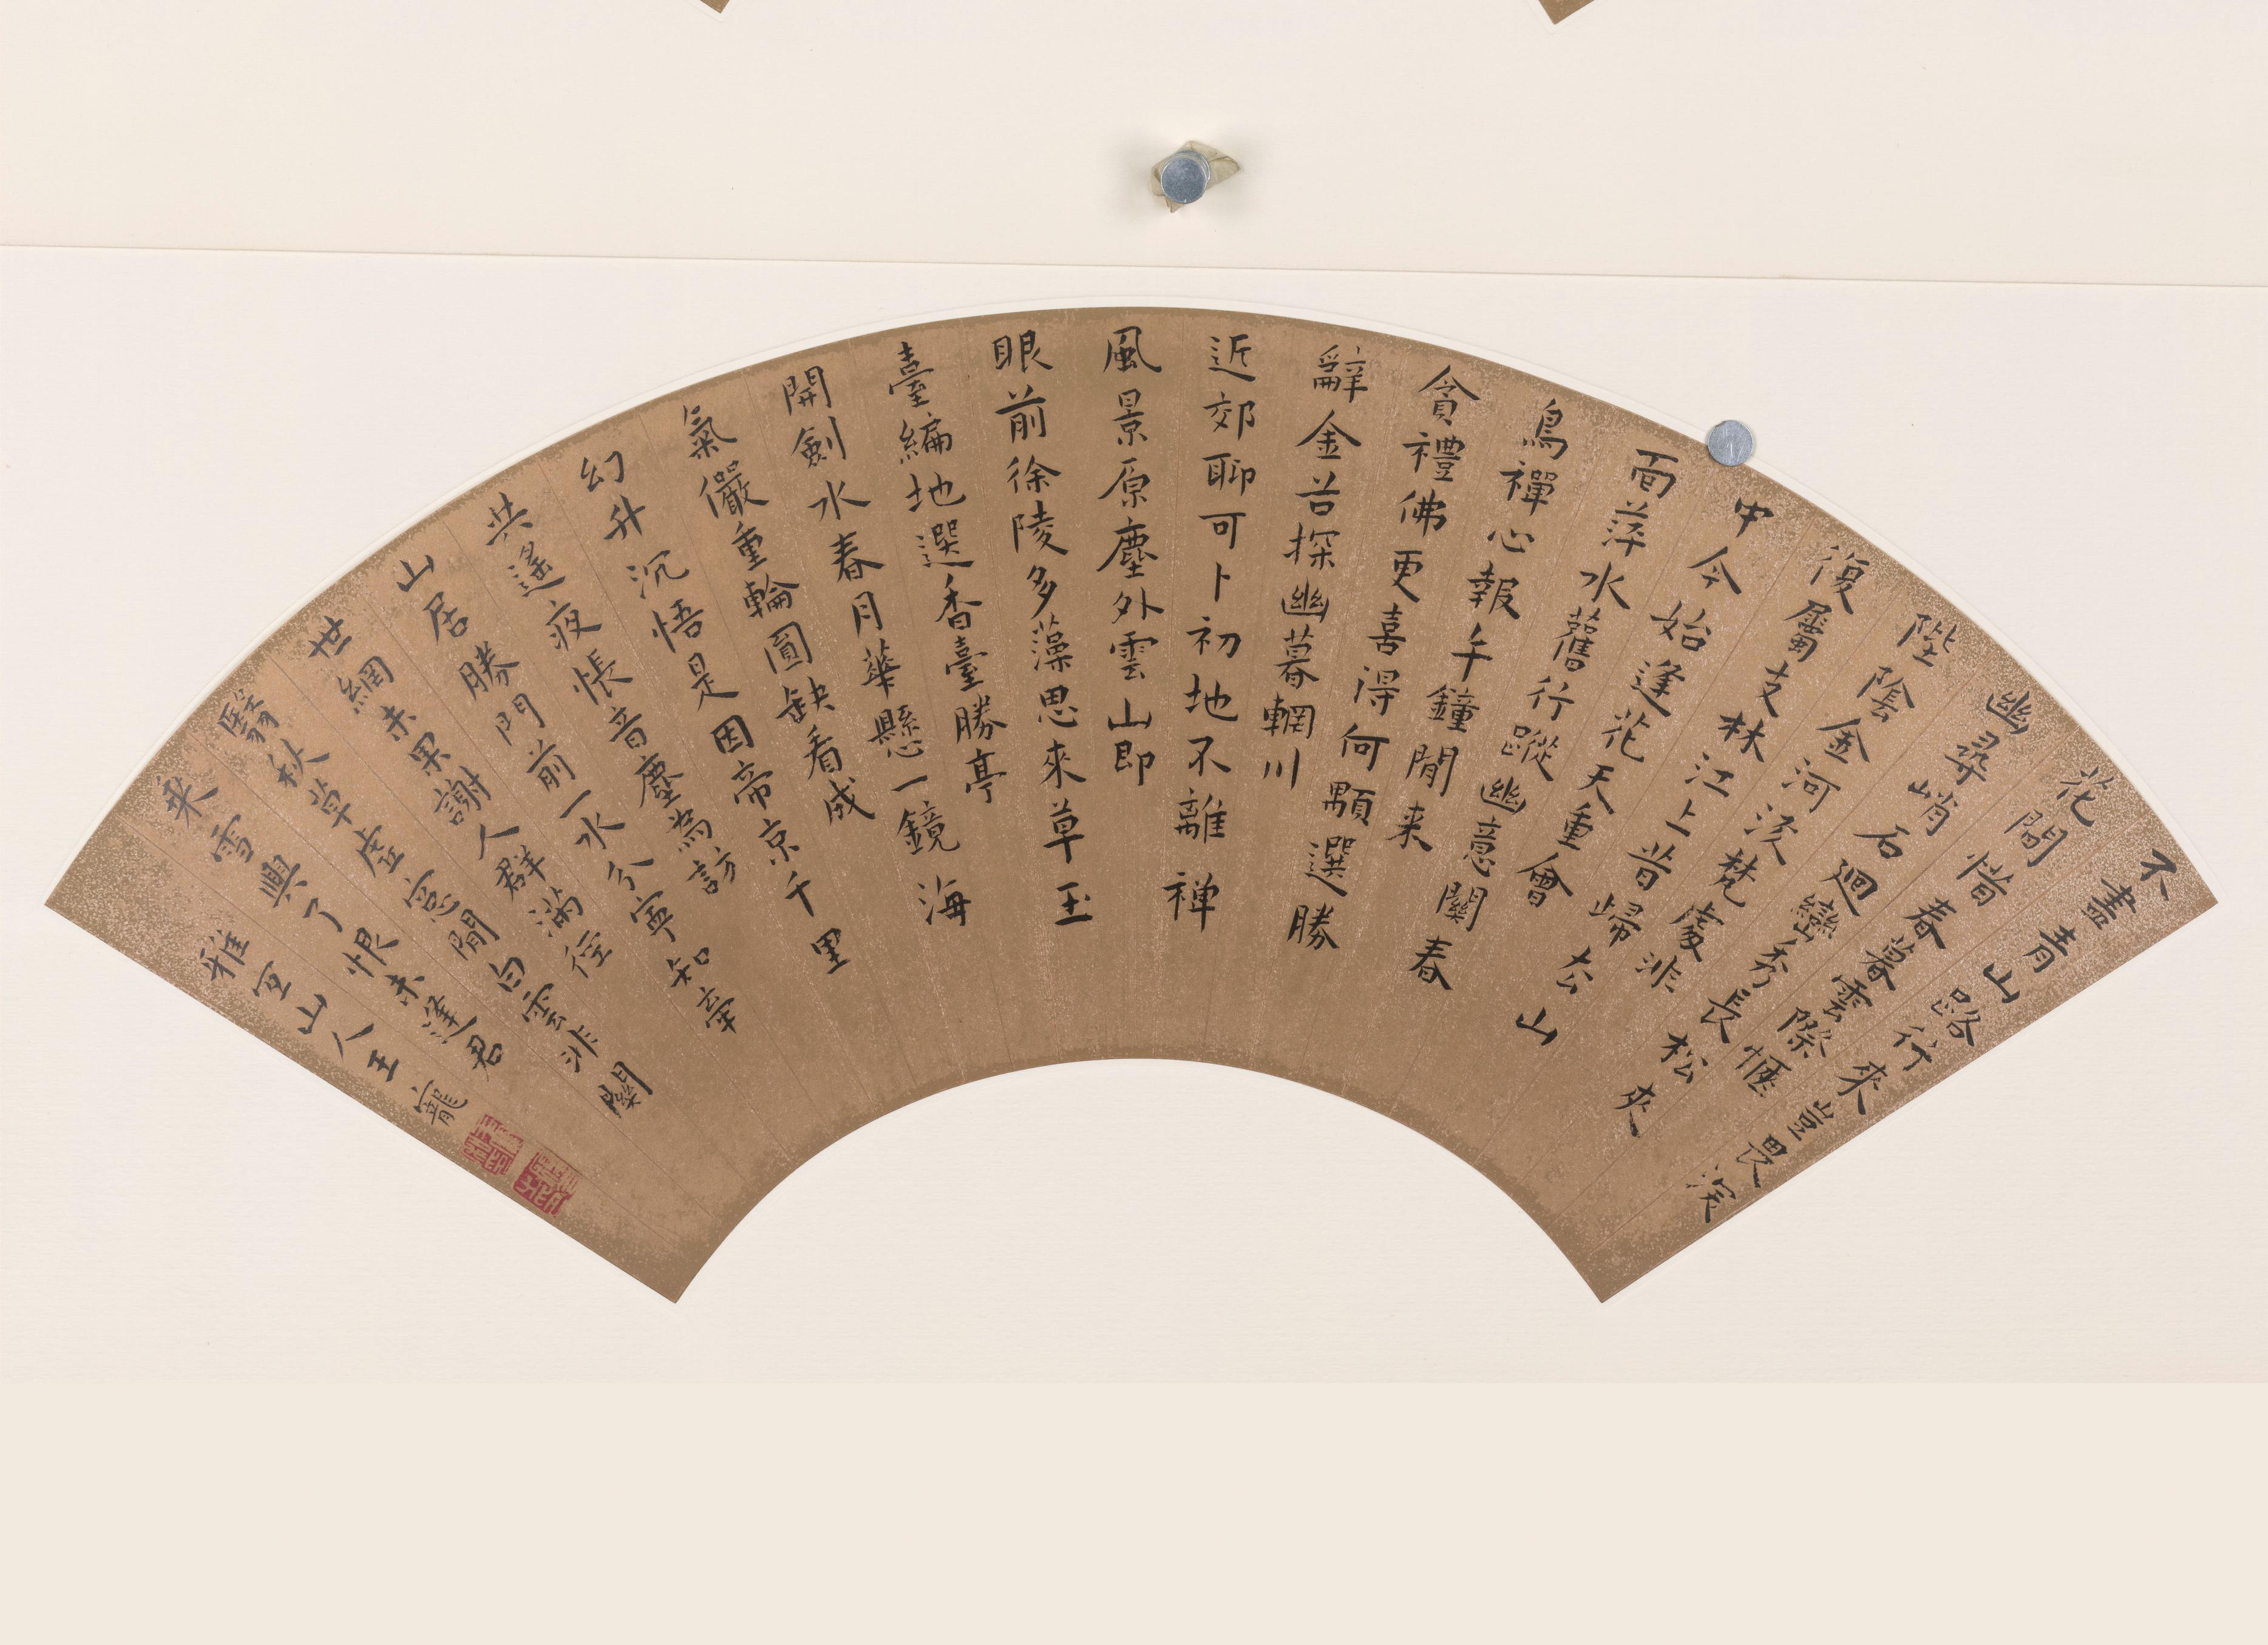 不盡青山路行來豈畏深
花間惜春暮雲際愜
幽尋峭石廻巒秀長松夾
陛陰金河流梵處非
復屬支林江上昔歸去山
中今始逢花天重會
面萍水舊行蹤幽意關春
鳥禪心報午鐘閒来
貪禮佛更喜得何顒選勝
辭金谷探幽慕輞川
近郊聊可卜初地不離禅
風景原塵外雲山即
眼前徐陵多藻思來草玉
臺編地選香臺勝亭
開劍水春月華懸一鏡海
氣儼重輪圓缺看成
幻升沉悟是因帝京千里
共遙夜悵音塵為訪
山居勝門前一水分寧知牽
世網未果謝人群滿徑
翳秋草虛窓閒白雲非關
乘雪興了恨未逢君
雅宜山人王寵